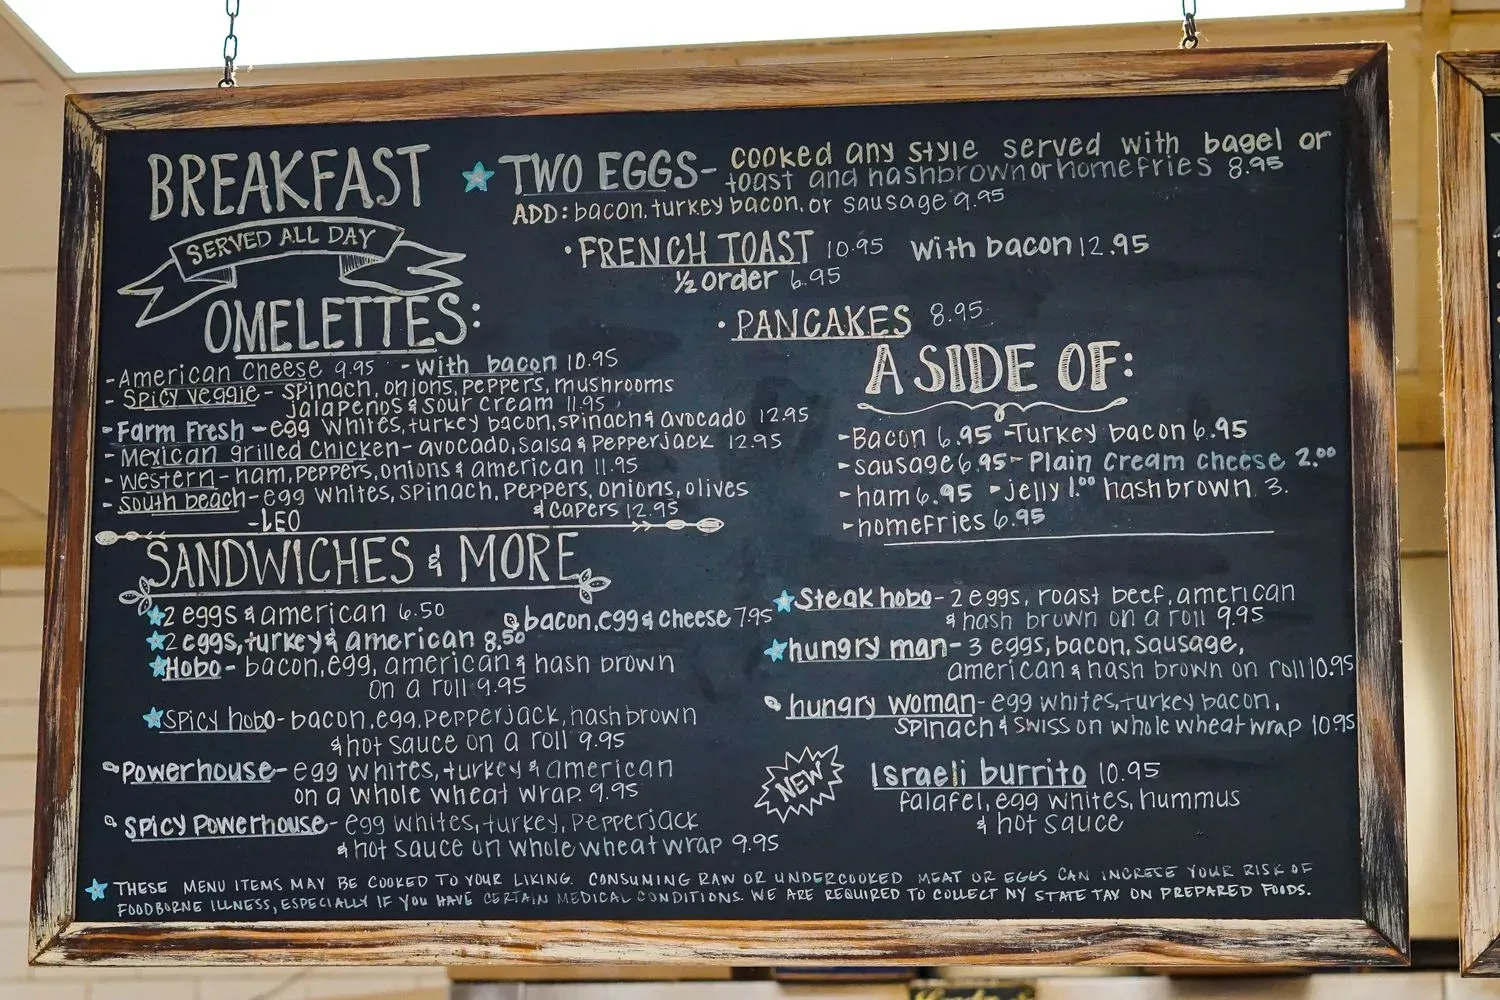 BREAKFAST
SERVED ALL DAY
TWO EGGS- cooked any style served with bagel or
toast and hashbrown or homefries 8.95
ADD: bacon, turkey bacon, or sausage 9.95
• FRENCH TOAST 10.95 with bacon 12.95
½ order 6.95
• PANCAKES 8.95
OMELETTES:
- American Cheese 9.95 - with bacon 10.95
- Spicy veggie - spinach, onions, peppers, mushrooms
jalapenos & sour cream 11.95
- Farm Fresh - egg whites, turkey bacon, spinach & avocado 12.95
- Mexican grilled chicken - avocado, salsa & pepperjack 12.95
- western - ham, peppers, onions & american 11.95
- South beach - egg whites, spinach, peppers, onions, olives
& capers 12.95
-LEO
A SIDE OF:
- Bacon 6.95 - Turkey bacon 6.95
- sausage 6.95 - Plain cream cheese 2.00
- ham 6.95 - jelly 1.00 hashbrown 3.
- homefries 6.95
SANDWICHES & MORE
2 eggs & american 6.50
bacon, egg & cheese 7.95
2 eggs, turkey & american 8.50
Hobo - bacon, egg, american & hash brown
on a roll 9.95
Spicy hobo - bacon, egg, pepperjack, hash brown
& hot sauce on a roll 9.95
Powerhouse - egg whites, turkey & american
on a whole wheat wrap. 9.95
Spicy Powerhouse - egg whites, turkey, pepperjack
& hot sauce on whole wheat wrap 9.95
Steak hobo - 2 eggs, roast beef, american
& hash brown on a roll 9.95
hungry man - 3 eggs, bacon, sausage,
american & hash brown on roll 10.95
hungry woman - egg whites, turkey bacon,
spinach & swiss on whole wheat wrap 10.95
NEW
Israeli burrito 10.95
falafel, egg whites, hummus
& hot sauce
THESE MENU ITEMS MAY BE COOKED TO YOUR LIKING. CONSUMING RAW OR UNDERCOOKED MEAT OR EGGS CAN INCRESE YOUR RISK OF
FOODBORNE ILLNESS, ESPECIALLY IF YOU HAVE CERTAIN MEDICAL CONDITIONS. WE ARE REQUIRED TO COLLECT NY STATE TAX ON PREPARED FOODS.